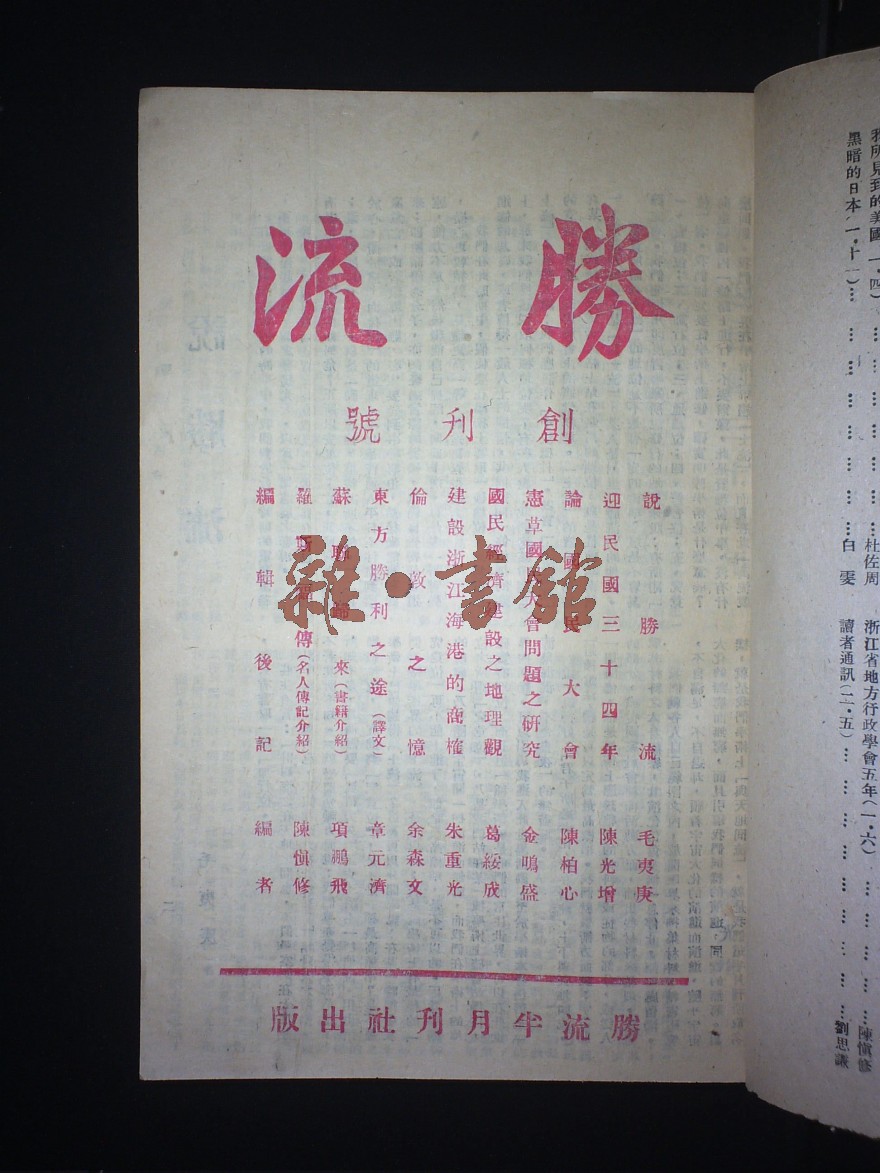 勝流
創刊號
說勝流 毛夷庚
迎民國三十四年 陳光增
論國民大會 陳柏心
憲草國民大會問題之研究 金鳴盛
國民經濟建設之地理觀 葛綏成
建設浙江海港的商榷 朱重光
倫敦之憶 余森文
東方勝利之途（譯文） 章元濟
蘇聯歸來（書籍介紹） 項鵬飛
羅斯福傳（名人傳記介紹） 陳愼修
編輯後記 編者
勝流半月刊社出版
雜·書館
我所見到的美國（一·四）⋯⋯⋯⋯⋯⋯杜佐周
黑暗的日本（一·十一）⋯⋯⋯⋯⋯⋯白雯
浙江省地方行政學會五年（一·六）⋯⋯⋯⋯陳愼修
讀者通訊（二·五）⋯⋯⋯⋯⋯⋯劉思謙